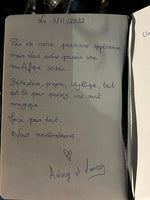 Le 5/11/2022
Pas de notre première expérience
mais nous avons passé une
magnifique soirée
Belle déco, propre, idyllique, tout
est là pour passer une nuit
magique
Merci pour tout
Nous reviendrons
Audrey et